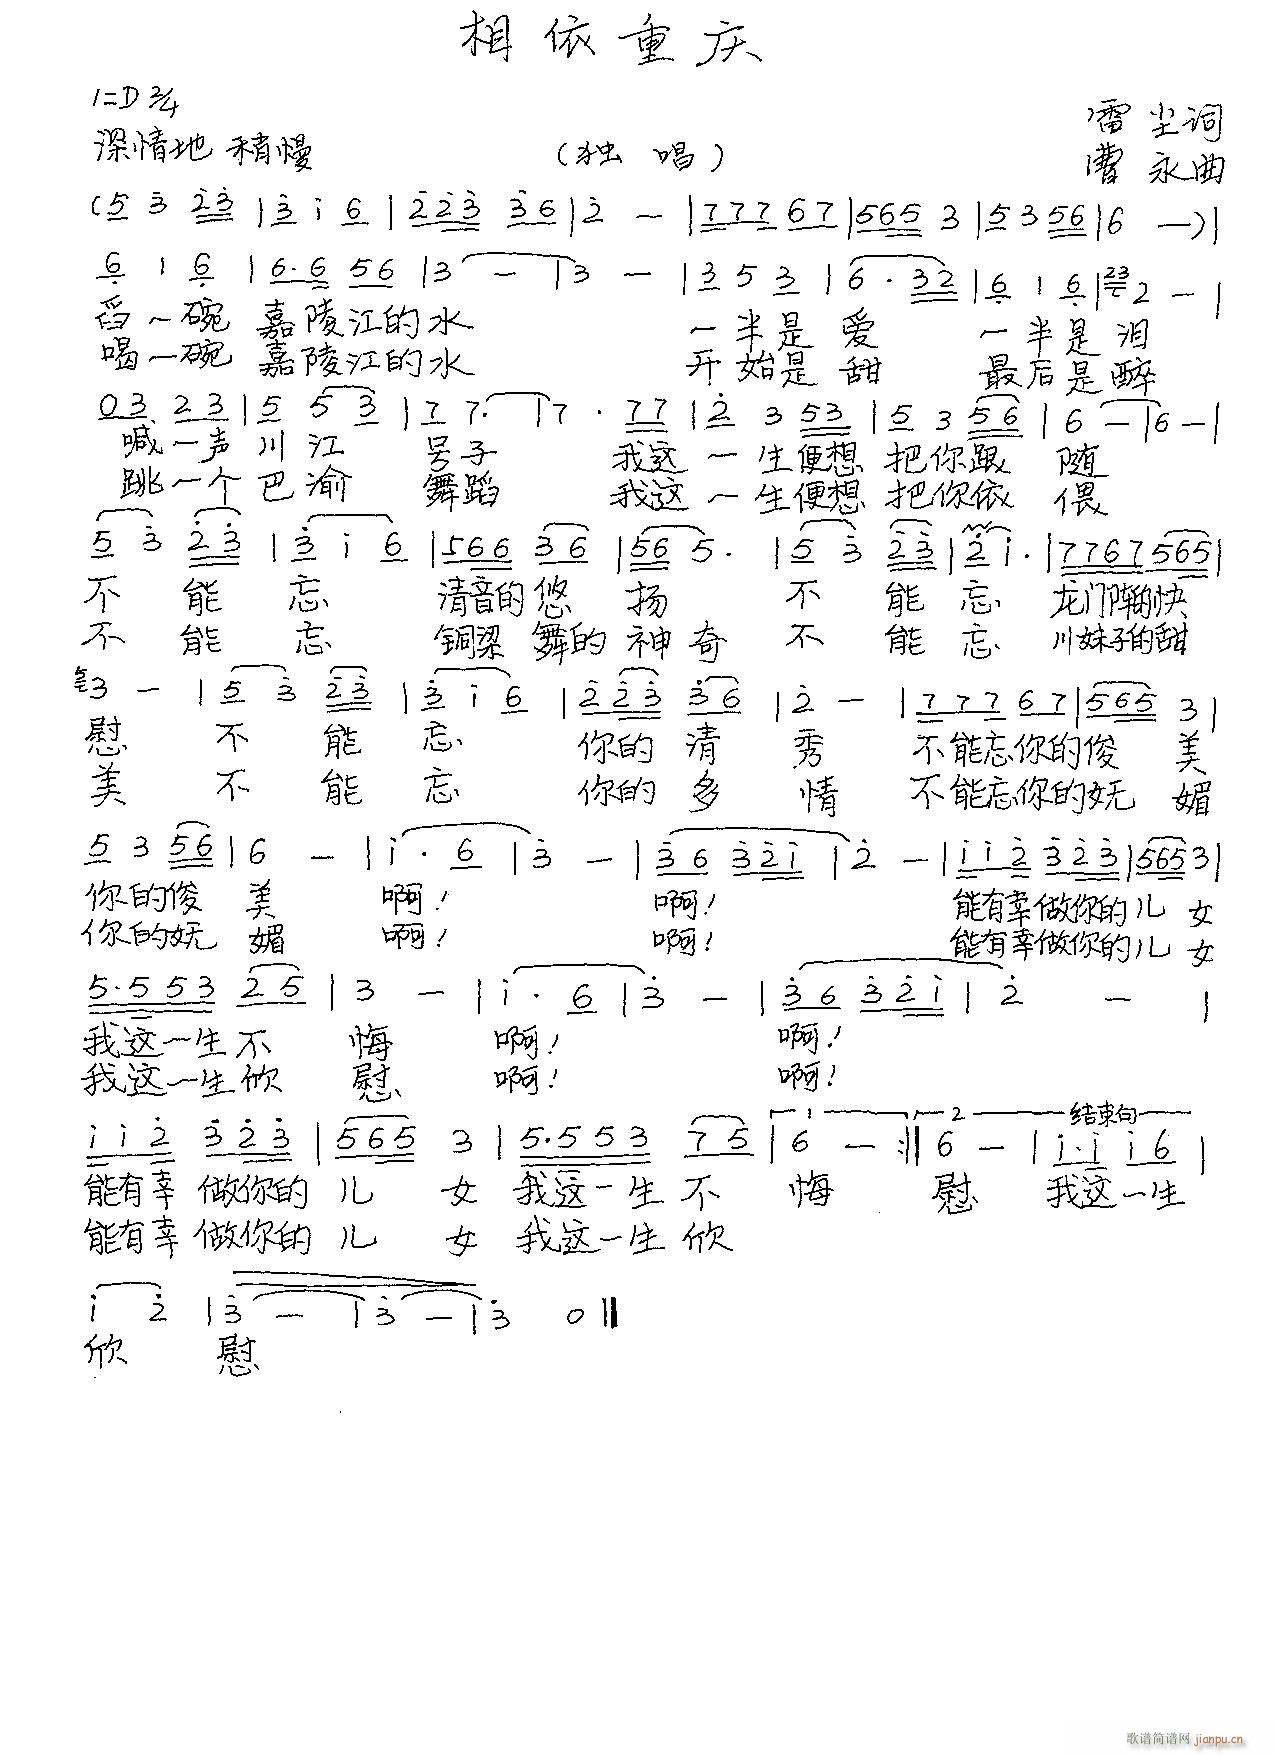 相依重庆
1=D 2/4
雷尘词
深情地 稍慢 (独 唱)
曹永曲
(5 3 2 3 | 3 i 6 | 2 2 3 3 6 | 2 — | 7 7 7 6 7 | 5 6 5 3 | 5 3 5 6 | 6 —) |
6 1 6 | 6· 6 5 6 | 3 — | 3 — | 3 5 3 | 6· 3 2 | 6 1 6 | 23 2 — |
舀一碗 嘉陵江的水 一半是爱 一半是泪
喝一碗 嘉陵江的水 开始是甜 最后是醉
0 3 2 3 | 5 5 3 | 7 7· | 7 · 7 7 | 2 3 5 3 | 5 3 5 6 | 6 — | 6 — |
喊一声川江 号子 我这一生便想把你跟 随
跳一个巴渝 舞蹈 我这一生便想把你依 偎
5 3 2 3 | 3 i 6 | 5 6 6 3 6 | 5 6 5· | 5 3 2 3 | 2 i· | 7 7 6 7 5 6 5 |
不 能 忘 清音的悠 扬 不 能 忘 龙门阵的快
不 能 忘 铜梁 舞的神奇 不 能 忘 川妹子的甜
3 — | 5 3 2 3 | 3 i 6 | 2 2 3 3 6 | 2 — | 7 7 7 6 7 | 5 6 5 3 |
慰 不 能 忘 你的 清 秀 不能忘你的俊 美
美 不 能 忘 你的 多 情 不能忘你的妩 媚
5 3 5 6 | 6 — | i · 6 | 3 — | 3 6 3 2 i | 2 — | i i 2 3 2 3 | 5 6 5 3 |
你的俊 美 啊! 啊! 能有幸做你的儿女
你的妩 媚 啊! 啊! 能有幸做你的儿女
5·5 5 3 2 5 | 3 — | i · 6 | 3 — | 3 6 3 2 i | 2 — |
我这一生不 悔 啊! 啊!
我这一生欣 慰 啊! 啊!
1 2 结束句
i i 2 3 2 3 | 5 6 5 3 | 5·5 5 3 7 5 | 6 — :‖ 6 — | i· i i 6 |
能有幸 做你的 儿 女 我这一生不 悔 慰 我这一生
能有幸 做你的 儿 女 我这一生欣
i 2 | 3 — | 3 — | 3 0 ‖
欣 慰
歌谱简谱网 jianpu.cn